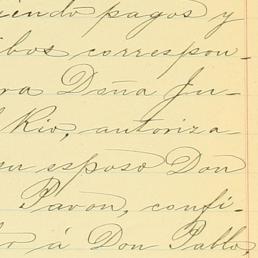 iendo pagos y
ibos correspon-
ra Doña Ju-
l Rio, autoriza-
su esposo Don
Pavon, confi-
do á Don Pablo,